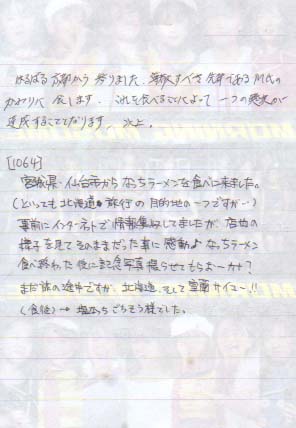 はるばる京都から参りました。尊敬すべき先輩であるM氏の
かわりに食します。これを食べることによって一つの歴史が
達成することとなります 以上。
[1064]
宮城県・仙台市からなっちラーメンを食べに来ました。
(といっても北海道旅行の目的地の一つですが…)
事前にインターネットで情報集めしてましたが、店内の
様子を見てそのままだった事に感動♪なっちラーメン
食べ終わった後に記念写真撮らせてもらおーカナ?
まだ旅の途中ですが、北海道、そして室蘭サイコー!!
(食後)→塩なっちごちそう様でした。